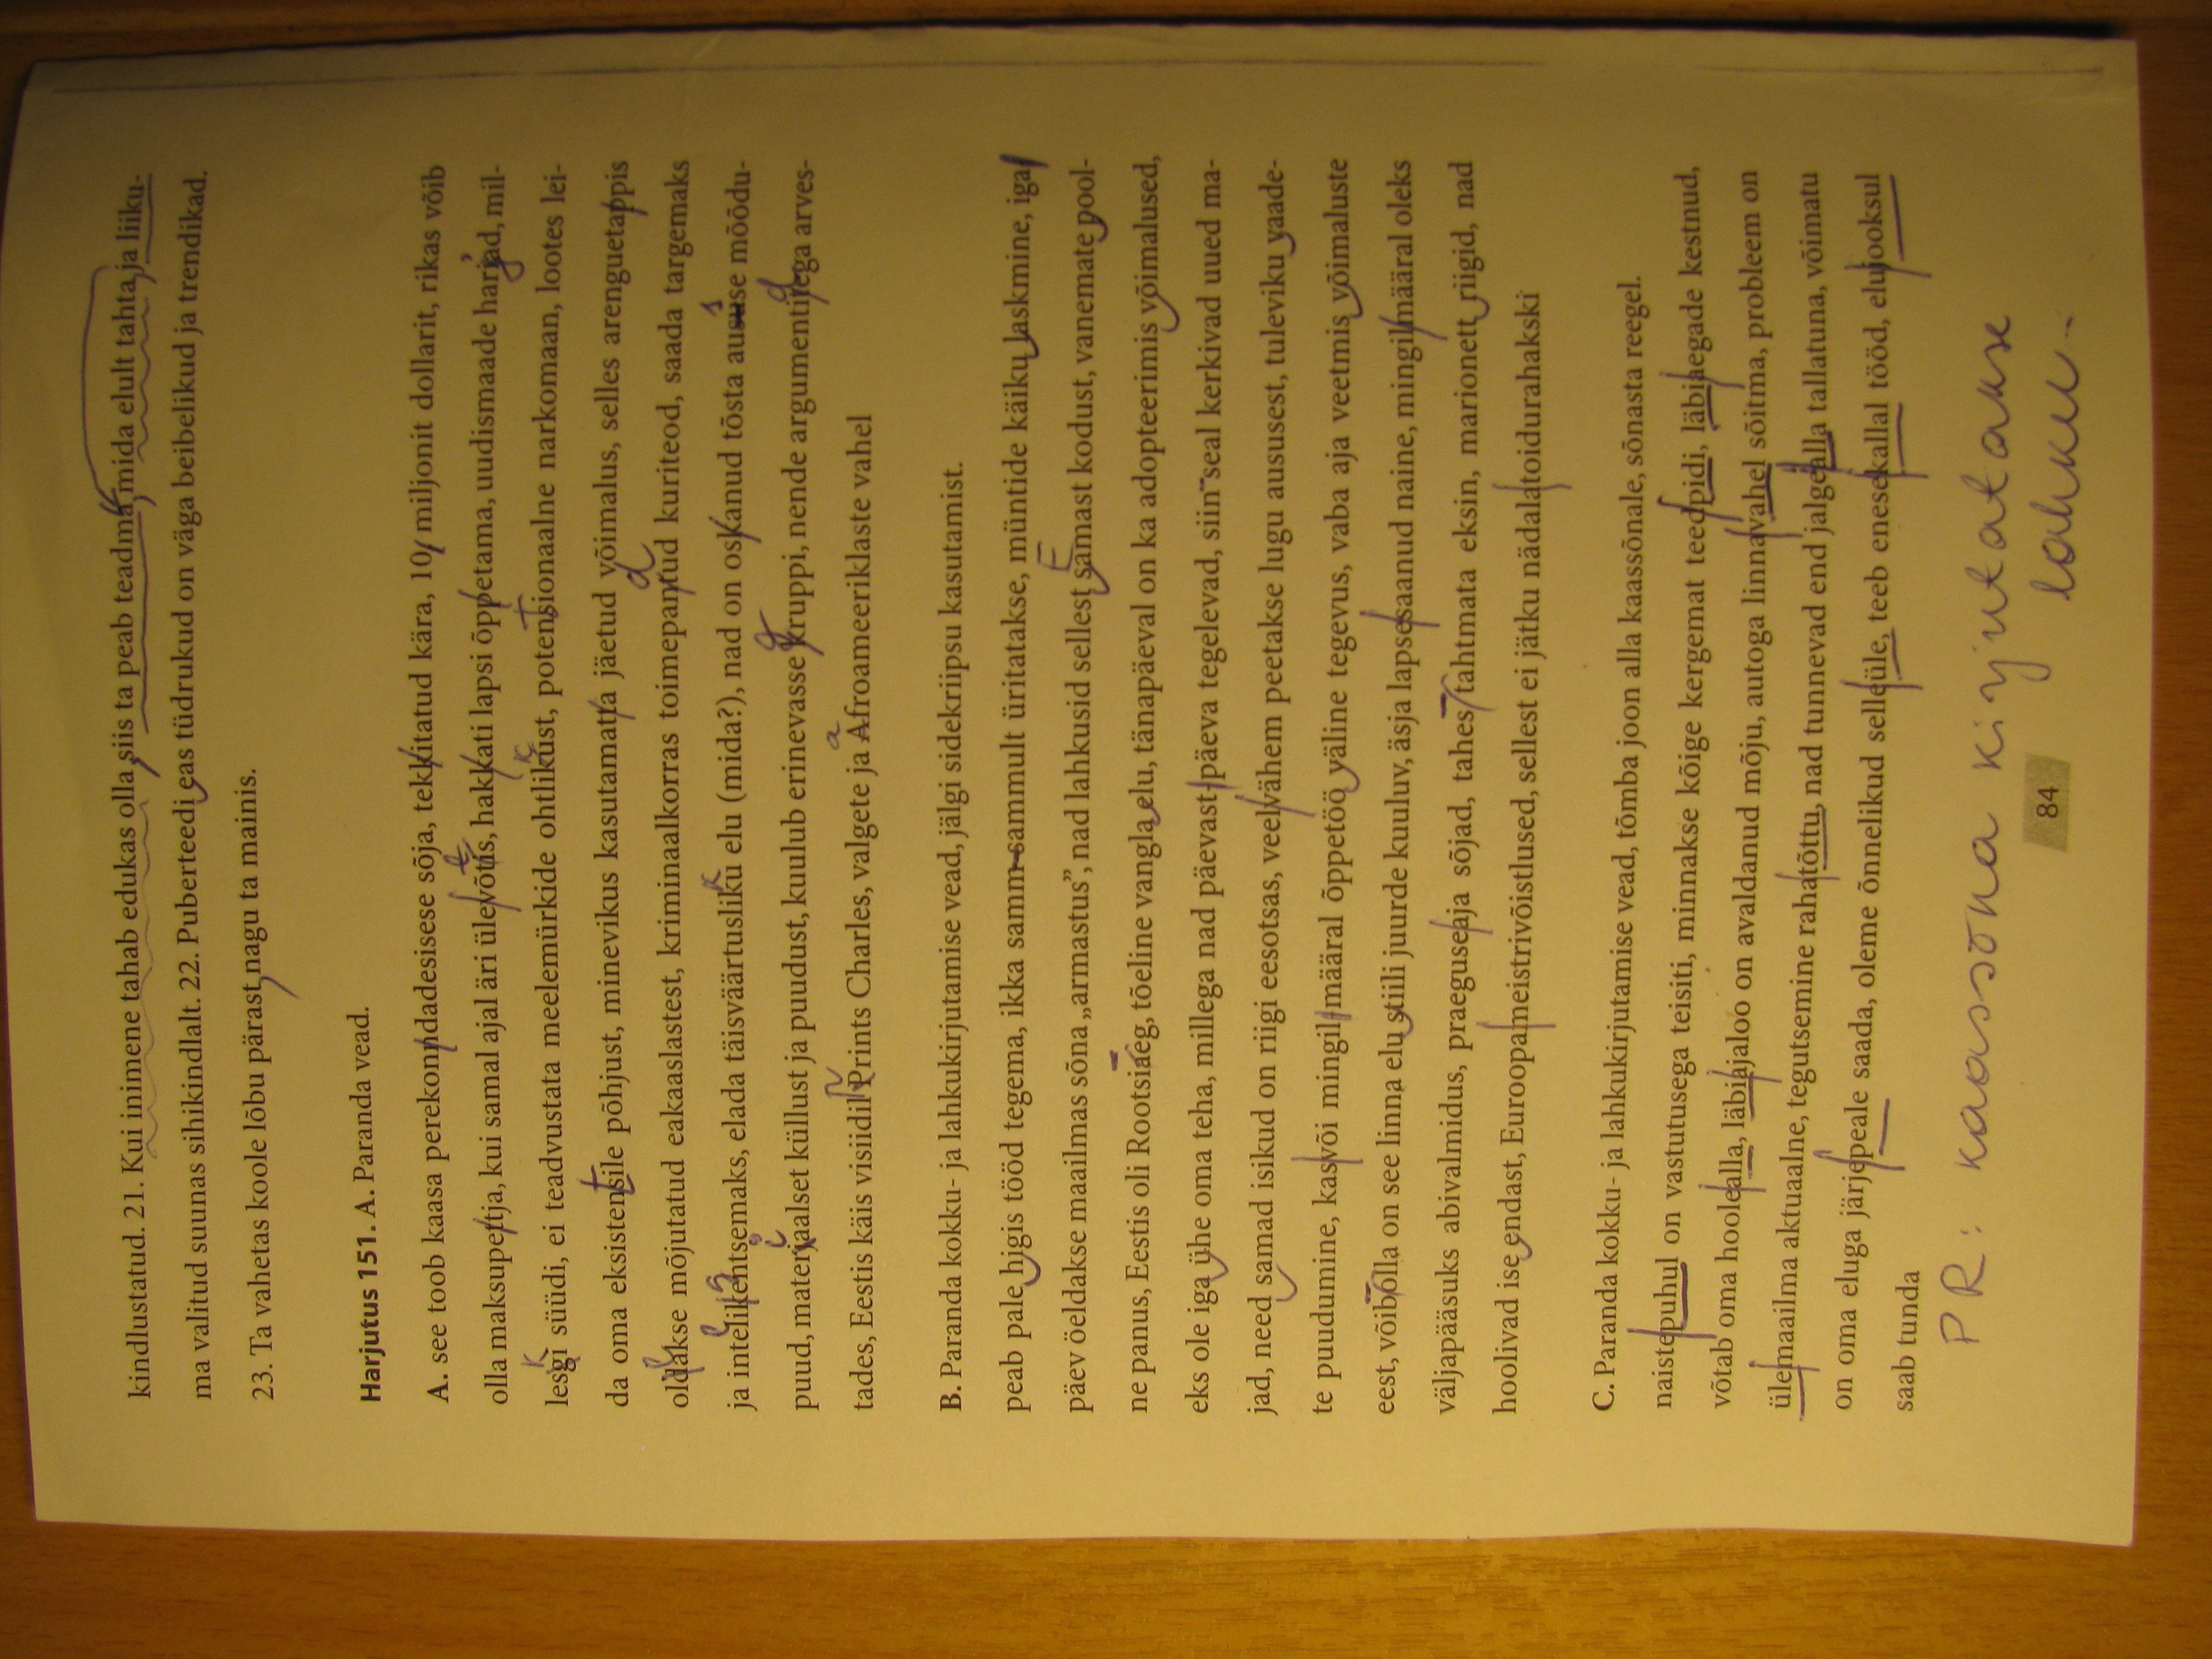 kindlustatud. 21. Kui inimene tahab edukas olla, siis ta peab teadma, mida elult tahta, ja liiku-
ma valitud suunas sihikindlalt. 22. Puberteedi eas tüdrukud on väga beibelikud ja trendikad.
23. Ta vahetas koole lõbu pärast, nagu ta mainis.
Harjutus 151. A. Paranda vead.
A. see toob kaasa perekonndadesisese sõja, tekkitatud kära, 10 miljonit dollarit, rikas võib
olla maksupettja, kui samal ajal äri ülevõtis, hakkati lapsi õppetama, uudismaade harjad, mil-
lesgi süüdi, ei teadvustata meelemürkide ohtlikust, potensionaalne narkomaan, lootes lei-
da oma eksistensile põhjust, minevikus kasutamatta jäetud võimalus, selles arenguetappis
oldakse mõjutatud eakaaslastest, kriminaalkorras toimepantud kuriteod, saada targemaks
ja intelikentsemaks, elada täisväärtusliku elu (mida?), nad on oskanud tõsta aususe mõõdu-
puud, materjaalset küllust ja puudust, kuulub erinevasse kruppi, nende argumentitega arves-
tades, Eestis käis visiidil Prints Charles, valgete ja Afroameeriklaste vahel
B. Paranda kokku- ja lahkukirjutamise vead, jälgi sidekriipsu kasutamist.
peab pale higis tööd tegema, ikka samm-sammult üritatakse, müntide käiku laskmine, iga
päev öeldakse maailmas sõna „armastus”, nad lahkusid sellest samast kodust, vanemate pool-
ne panus, Eestis oli Rootsiaeg, tõeline vangla elu, tänapäeval on ka adopteerimis võimalused,
eks ole iga ühe oma teha, millega nad päevast-päeva tegelevad, siin seal kerkivad uued ma-
jad, need samad isikud on riigi eesotsas, veelvähem peetakse lugu aususest, tuleviku vaade-
te puudumine, kasvõi mingil määral õppetöö väline tegevus, vaba aja veetmis võimaluste
eest, võibolla on see linna elu stiili juurde kuuluv, äsja lapsesaanud naine, mingilmääral oleks
väljapääsuks abivalmidus, praeguseaja sõjad, tahes tahtmata eksin, marionett riigid, nad
hoolivad ise endast, Euroopameistrivõistlused, sellest ei jätku nädalatoidurahakski
C. Paranda kokku- ja lahkukirjutamise vead, tõmba joon alla kaassõnale, sõnasta reegel.
naistepuhul on vastutusega teisiti, minnakse kõige kergemat teedpidi, läbiaegade kestnud,
võtab oma hoolealla, läbiajaloo on avaldanud mõju, autoga linnavahel sõitma, probleem on
ülemaailma aktuaalne, tegutsemine rahatõttu, nad tunnevad end jalgealla tallatuna, võimatu
on oma eluga järjepeale saada, oleme õnnelikud selleüle, teeb enesekallal tööd, elujooksul
saab tunda
PR: kaassõna kirjutatakse
lahku.
84